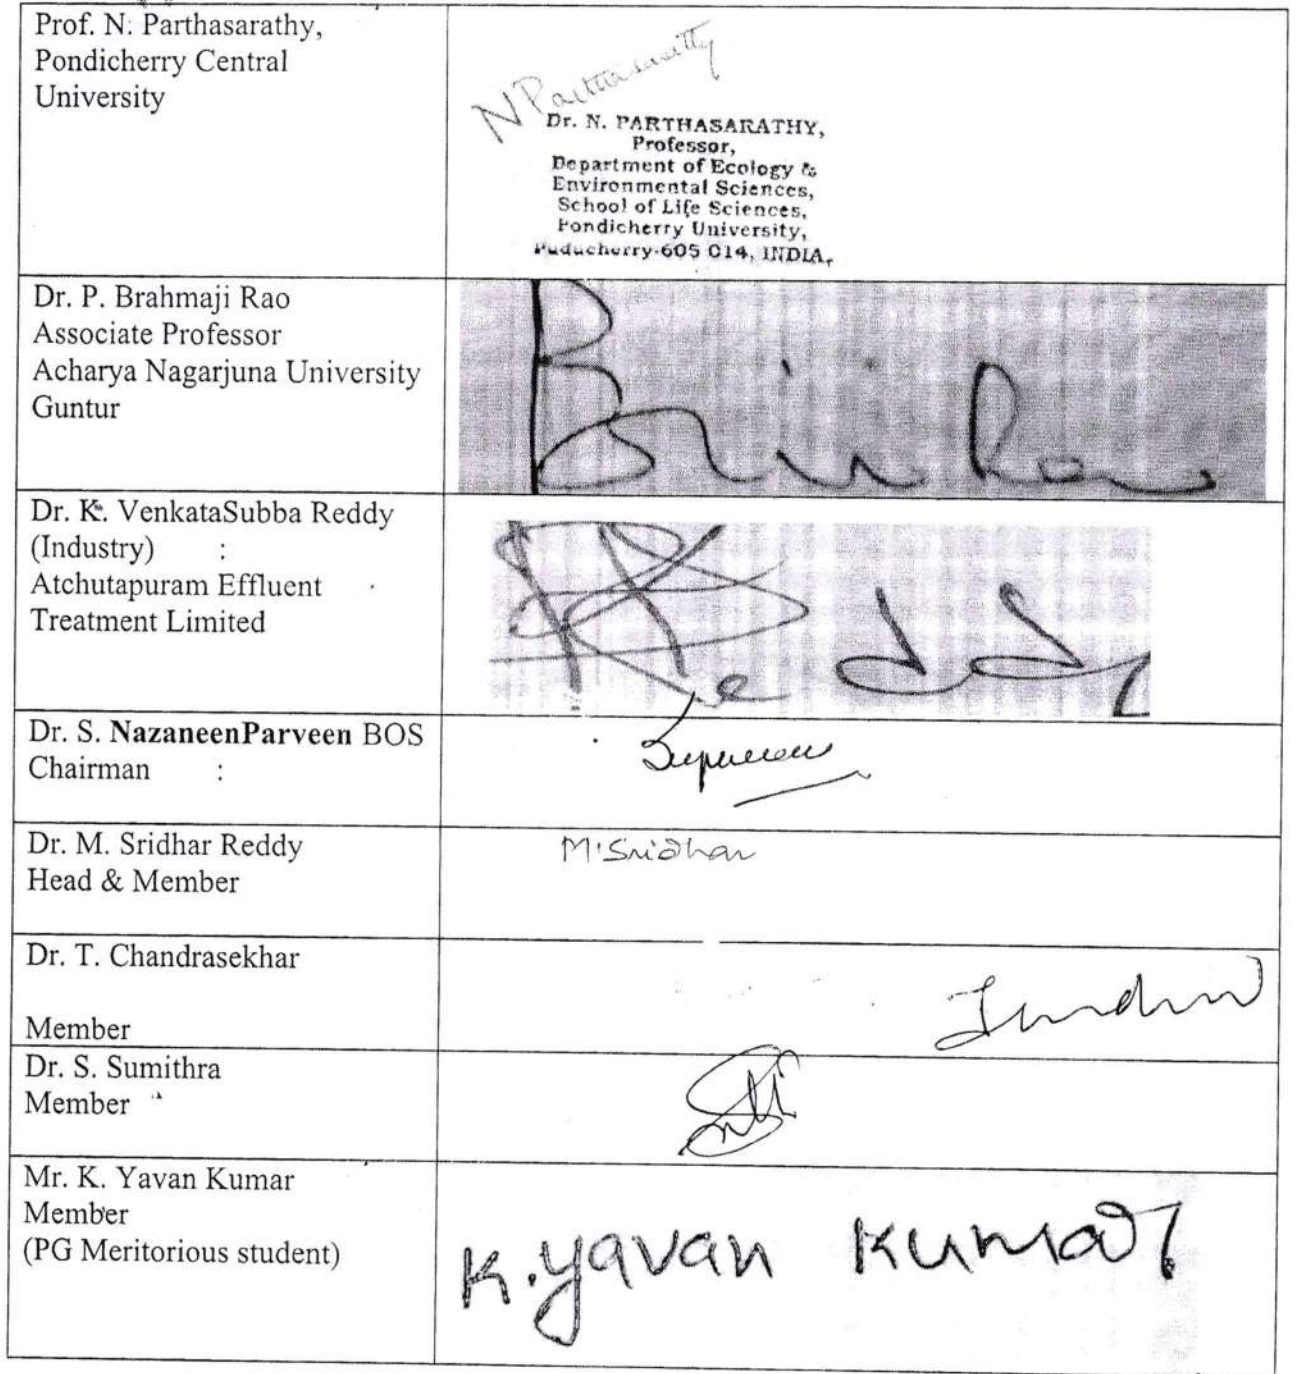 Prof. N. Parthasarathy,
Pondicherry Central
University
N Parthasarathy
Dr. N. PARTHASARATHY,
Professor,
Department of Ecology &
Environmental Sciences,
School of Life Sciences,
Pondicherry University,
Puducherry-605 014, INDIA.
Dr. P. Brahmaji Rao
Associate Professor
Acharya Nagarjuna University
Guntur
Rao
Dr. K. VenkataSubba Reddy
(Industry) :
Atchutapuram Effluent
Treatment Limited
Reddy
Dr. S. NazaneenParveen BOS
Chairman :
Dr. M. Sridhar Reddy
Head & Member
M. Sridhar
Dr. T. Chandrasekhar
Member
Dr. S. Sumithra
Member
Mr. K. Yavan Kumar
Member
(PG Meritorious student)
K. Yavan Kumar